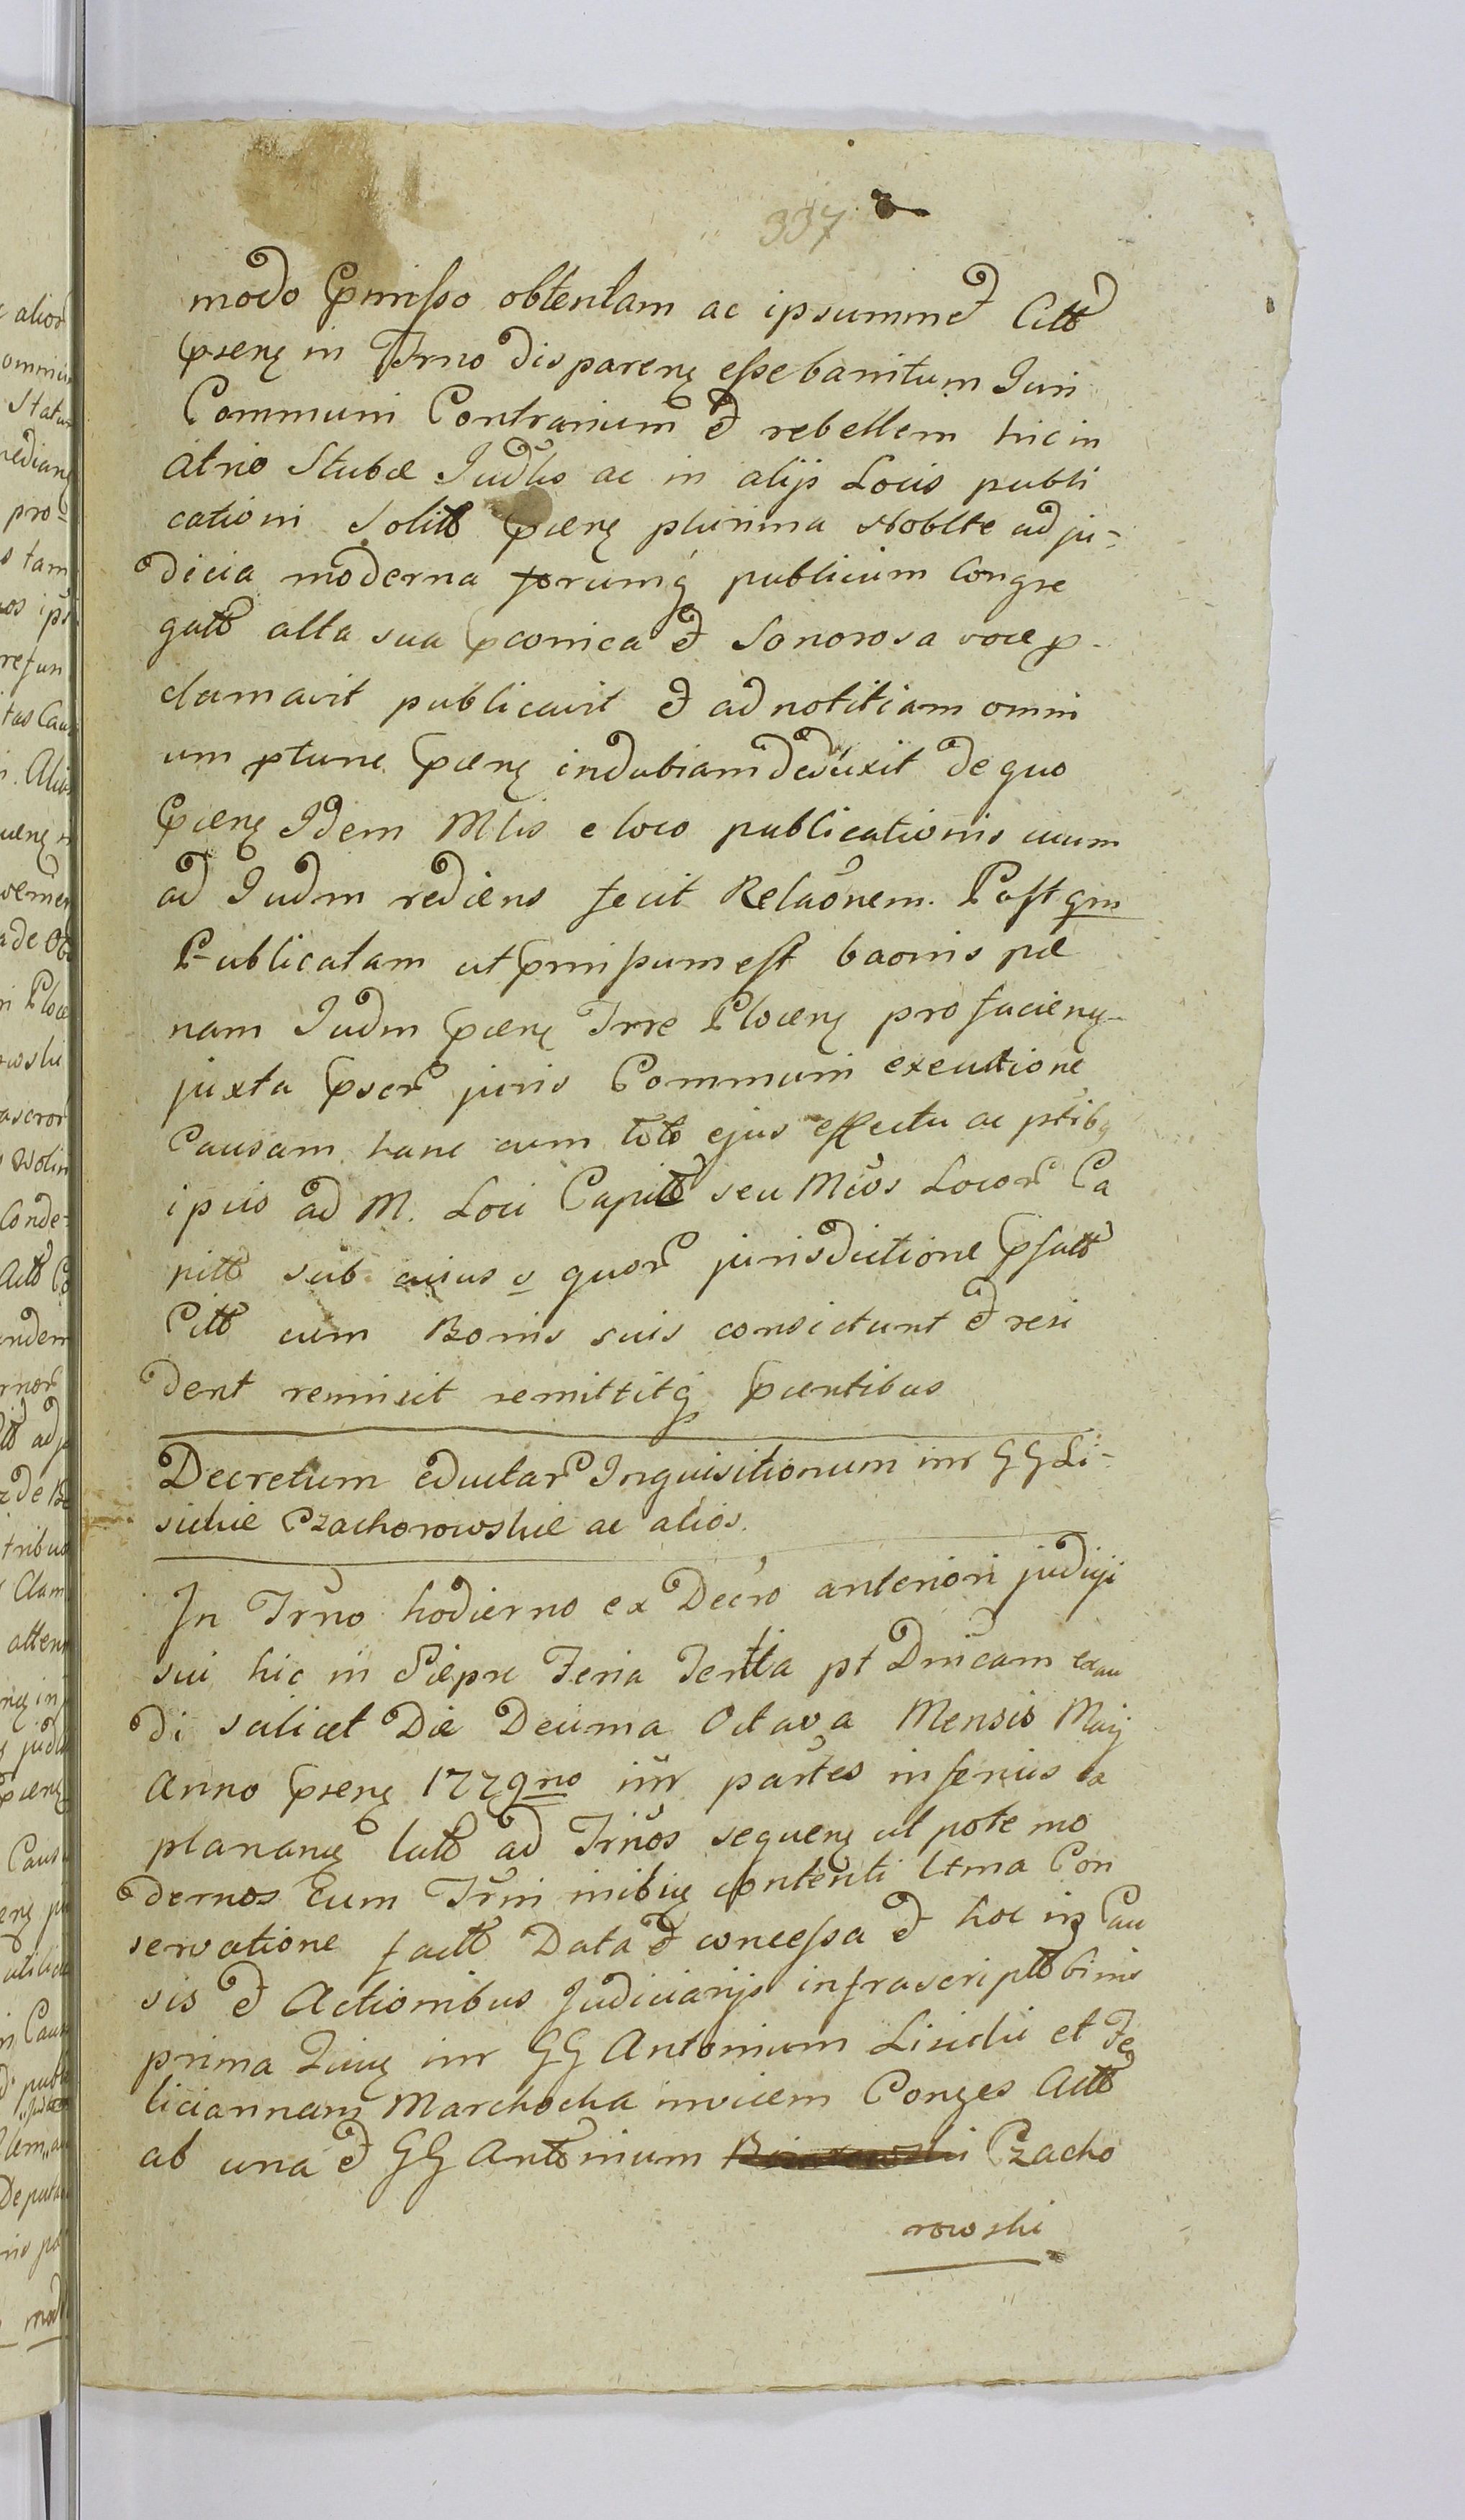 337
modo pmisso obtentam ac ipsummet Citt
psenę in Trno disparenę esse banitum Juri
Communi Contrarium et rebellem hic in
atrio Stubæ Judlis ac in alijs Locis publi
cationi Solitt pcenę plurima Noblte ad ju-
dicia moderna forumq publicum Congre
gatt alta sua pconica et Sonorosa voce p-
clamavit publicavit et ad notitiam omni
um ptunc pcenę indubiam deduxit de quo
pcenę Idem Mlis e loco publicationis cucum
ad Judm rediens fecit Relaonem. Post qm
Publicatam ut pmissum est baonis pæ
nam Judm pcenę Trre Plocenę pro facienę
juxta pscr juris Communi executione
Causam hanc cum toto ejus effectu ac ptibq
ipsis ad M. Loci Capitt seu Mcos Locor Ca
pitt sub cujus v quor jurisdictione psatt
Citt cum Bonis suis consistunt et resi
dent remisit remittitq pcentibus
Decretum eductar Inquisitionum inr GG Li-
sickie Czachorowskie ac alios.
In Trno hodierno ex Decro anteriori judicij
sui hic in Sierpc Feria Tertia pt Dnicam exau
di scilicet Die Decima Octava Mensis Maij
Anno psenę 1779no inr partes inferius ex
plananę latt ad Trnos sequenę ut pote mo
dernos Cum Trni inibię contenti ltma Con
servatione factt Data et concessa et hoc in Cau
sis et Actionibus Judiciarijs infrascriptt binis
prima inr GG Antonium Lisicki et Fe
liciannam Marchocka invicem Conges Actt
ab una et GG Antonium Czacho
rowski